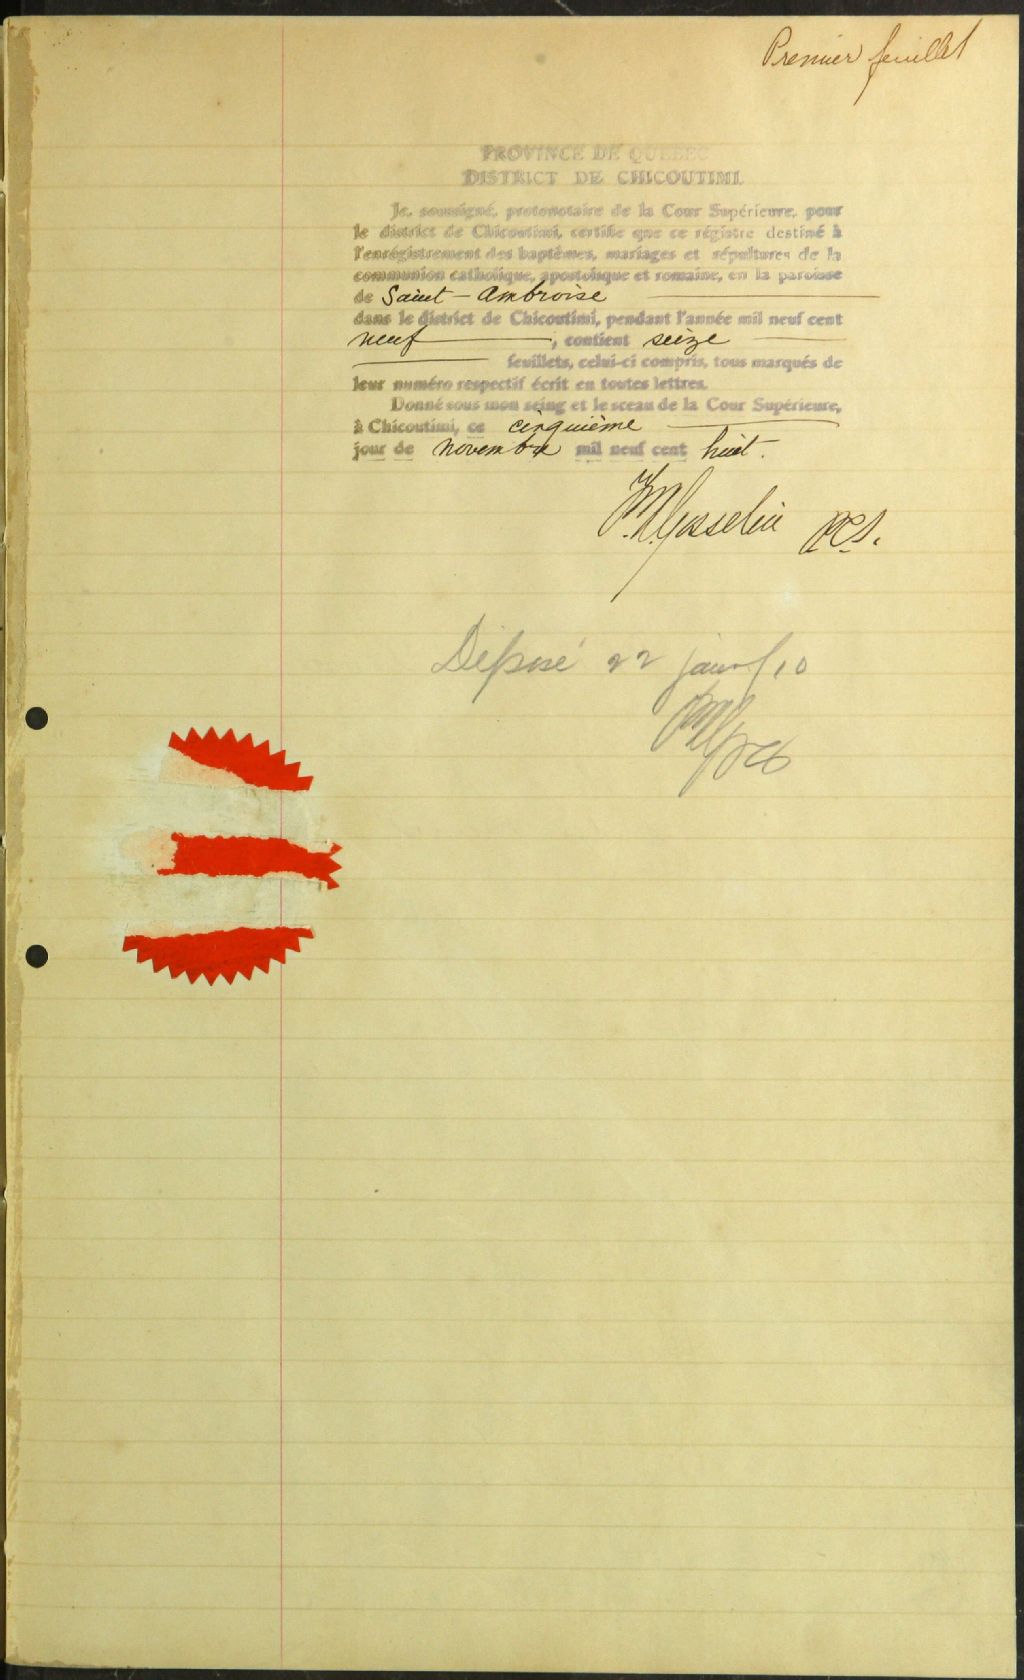 Premier feuillet
PROVINCE DE QUEBEC
DISTRICT DE CHICOUTIMI.
Je, soussigné, protonotaire de la Cour Supérieure, pour
le district de Chicoutimi, certifie que ce régistre destiné à
l'enrégistrement des baptêmes, mariages et sépultures de la
communion catholique, apostolique et romaine, en la paroisse
de Saint-Ambroise
dans le district de Chicoutimi, pendant l'année mil neuf cent
neuf ; contient seize
feuillets, celui-ci compris, tous marqués de
leur numéro respectif écrit en toutes lettres.
Donné sous mon seing et le sceau de la Cour Supérieure,
à Chicoutimi, ce cinquième
jour de novembre mil neuf cent huit.
Gosselin P.C.S.
Déposé 22 janv/10